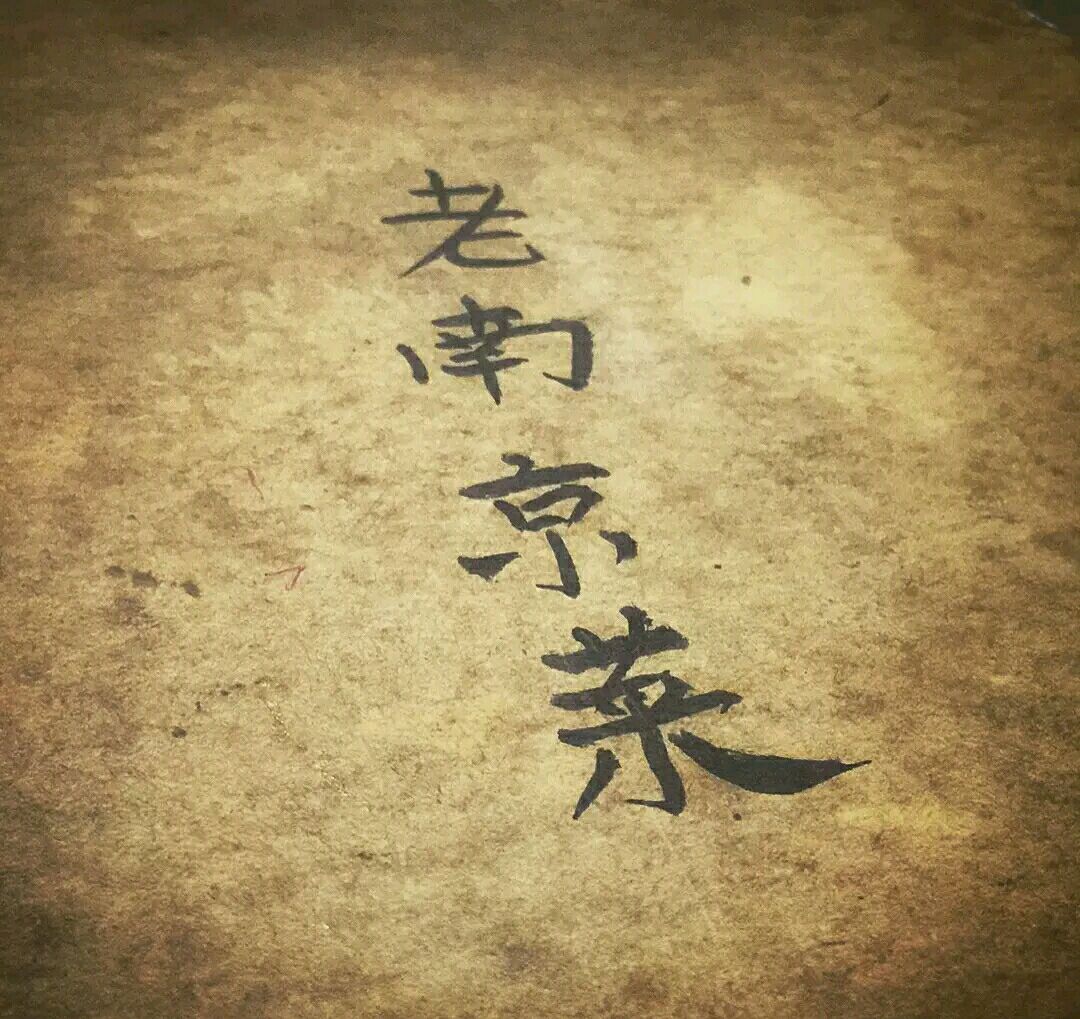 老南京菜